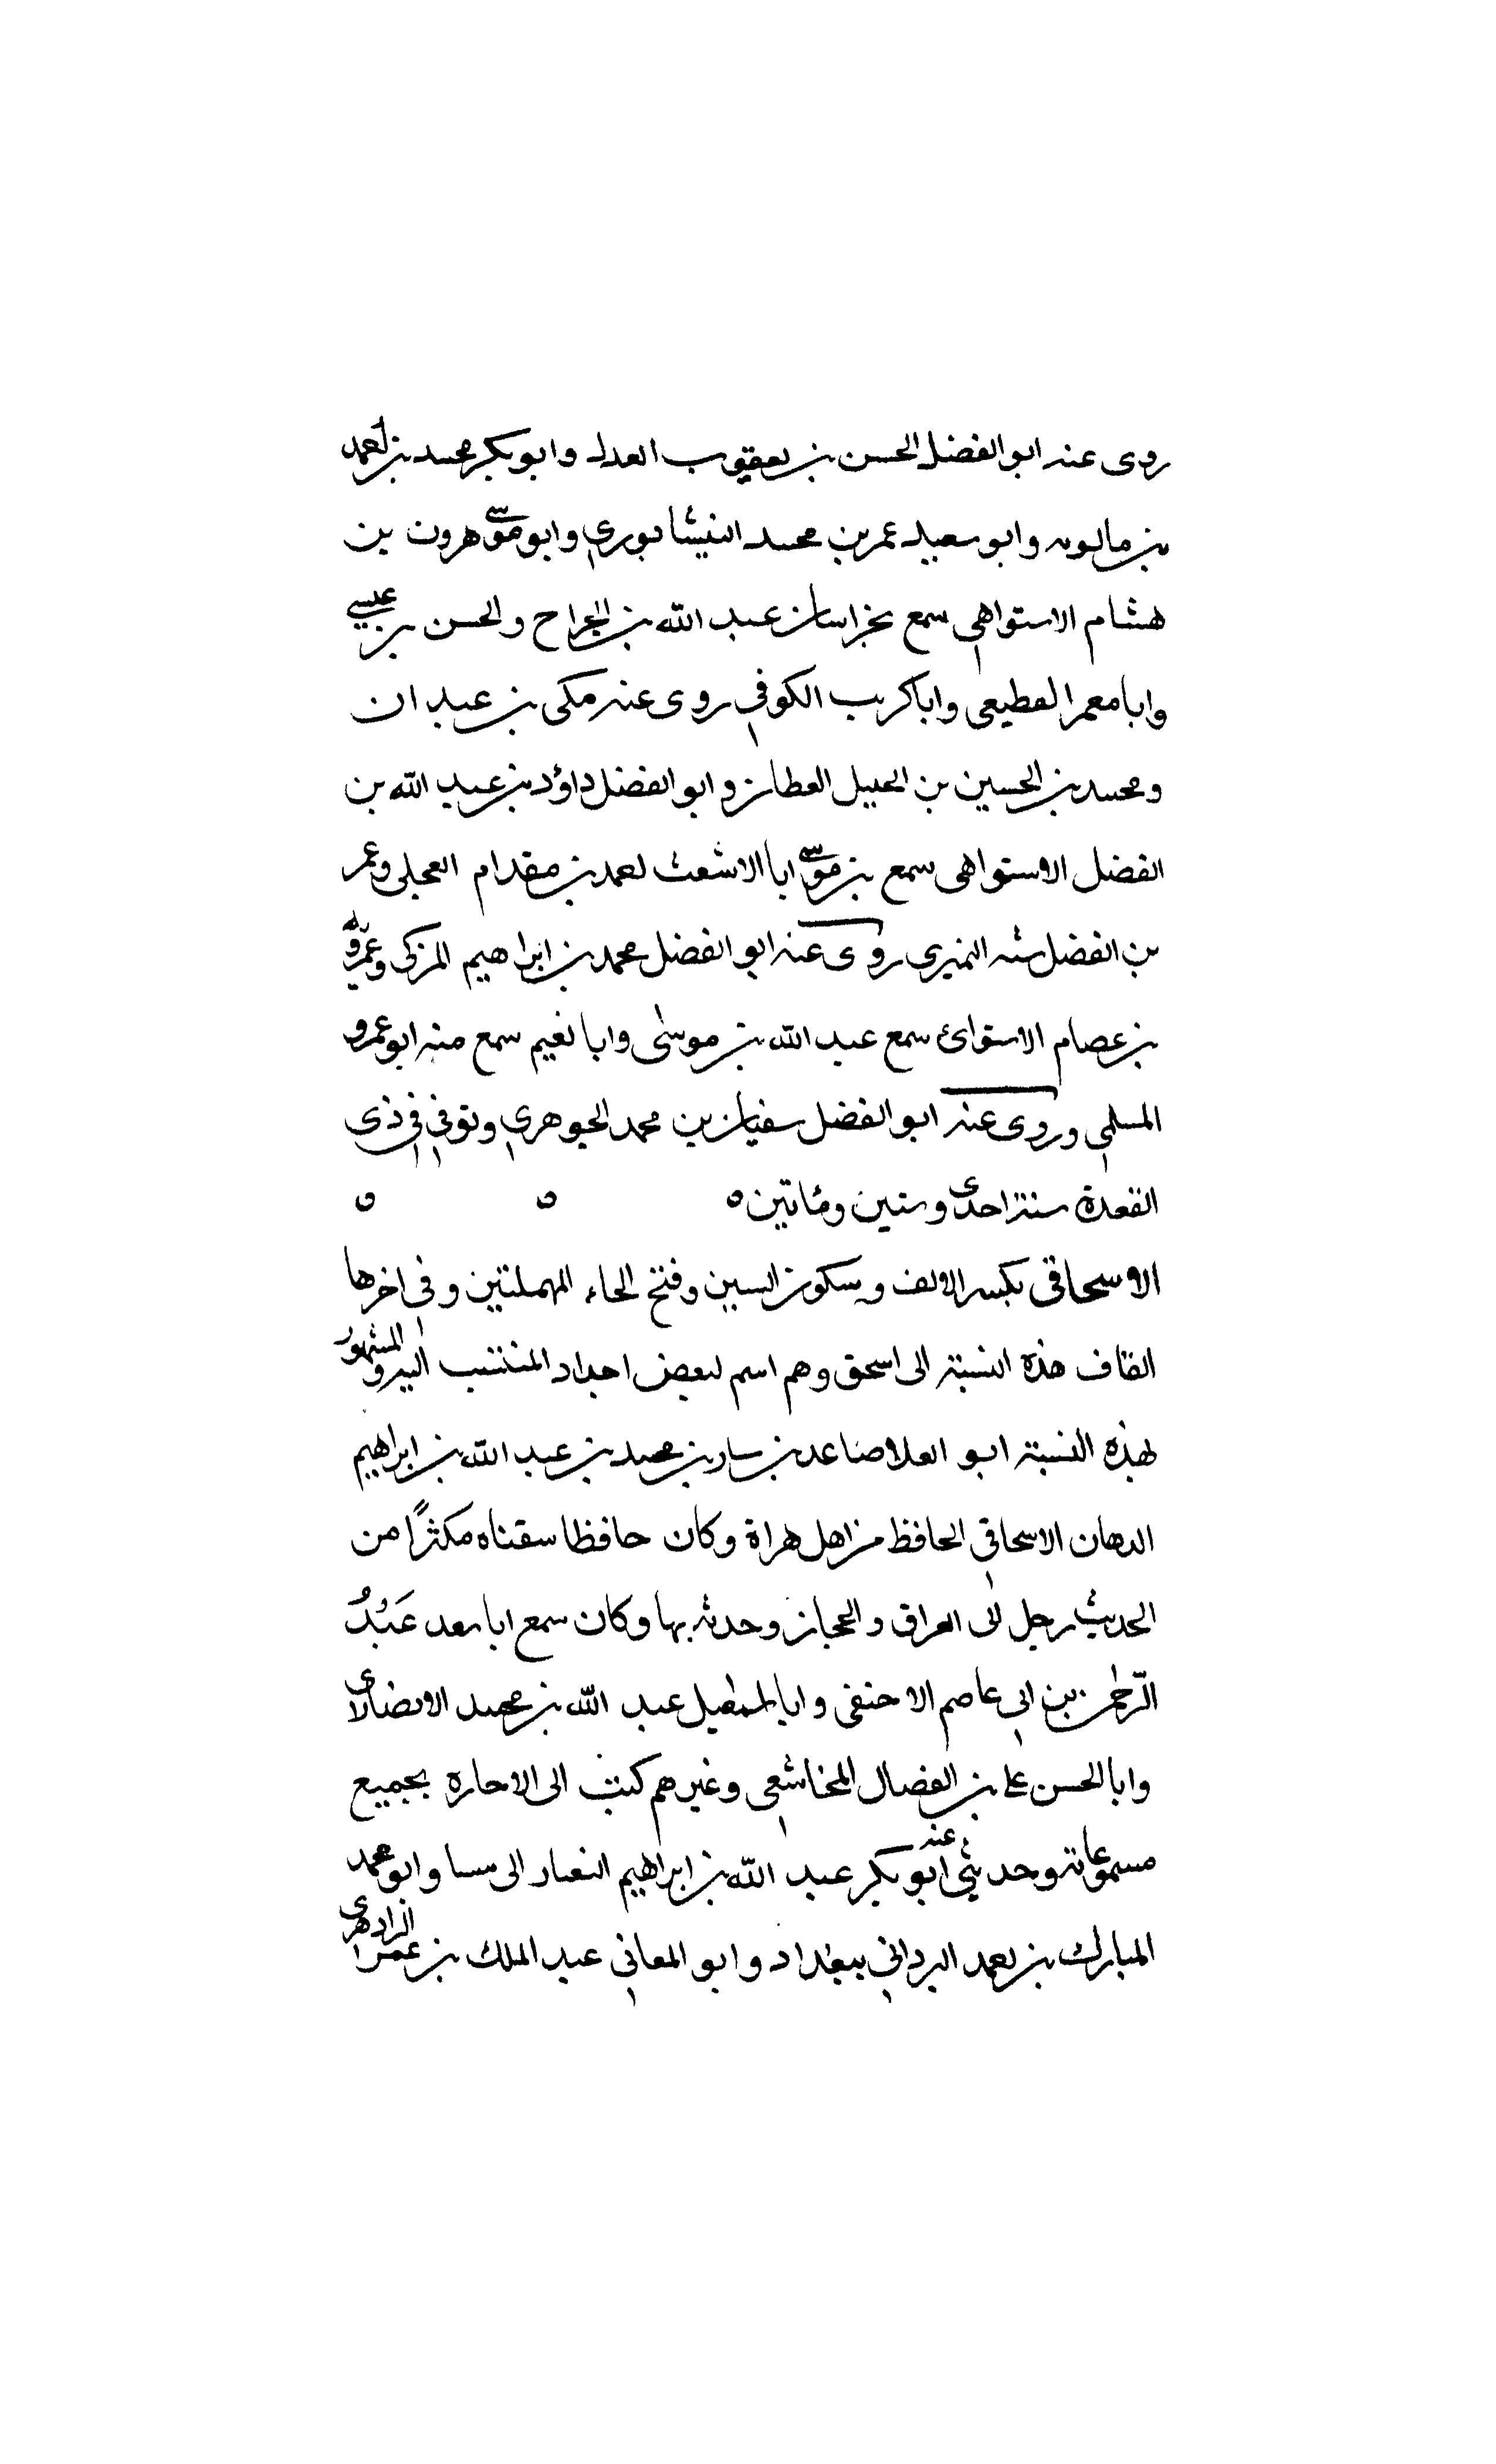 روى عنه ابو الفضل الحسن بن يعقوب العدل وابو بكر محمد بن احمد
بن بالويه وابو سعيد عمر بن محمد النيشابوري وابو موسى هرون بن
هشام الاستواهي سمع بخراسان عبد الله بن الجراح والحسن بن عيسى
وابا معمر القطيعي وابا كريب الكوفي روى عنه مكى بن عبدان
ومحمد بن الحسين بن الخليل القطان وابو الفضل داؤد بن عبد الله بن
الفضل الاستواهى سمع بن موسى ابا الاشعث احمد بن مقدام العجلى وعمر
بن الفضل شبه النميرى روى عنه ابو الفضل محمد بن ابراهيم المزكى وعمرو
بن عصام الاستوائ سمع عبد الله بن موسى وابا نعيم سمع منه ابو عمرو
المستملي وروى عنه ابو الفضل سفيان بن محمد الجوهري وتوفي في ذى
القعدة سنة احدى وستين ومائتين ه ه ه
الاسحاقى بكسر الالف وسكون السين وفتح الحاء المهملتين وفى اخرها
القاف هذه النسبة الى اسحق وهم اسم لبعض اجداد المنتسب اليه والمشهور
بهذه النسبة ابو العلا صاعد بن سيار بن محمد بن عبد الله بن ابراهيم
الدهان الاسحاقي الحافظ من اهل هراة وكان حافظا متقنا مكثرًا من
الحديث رحل الى العراق والحجاز وحدث بها وكان سمع ابا سعد عَبْدُ
الرّحمن بن ابي عاصم الاحنفى وابا اسمعيل عبد الله بن محمد الانصارى
وابا الحسن على بن الفضال المجاشعي وغيرهم كتب الى الاجازة بجميع
مسموعاته وحدثني عنه ابو بكر عبد الله بن ابراهيم وابو محمد
المبارك بن احمد البرداني ببغداد وابو المعاني عبد الملك بن عمر الزاهرى